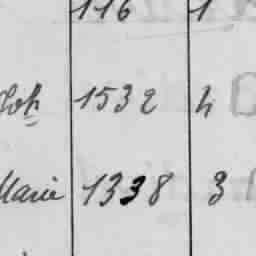 116 1
Joh 1532 4
Marie 1338 3